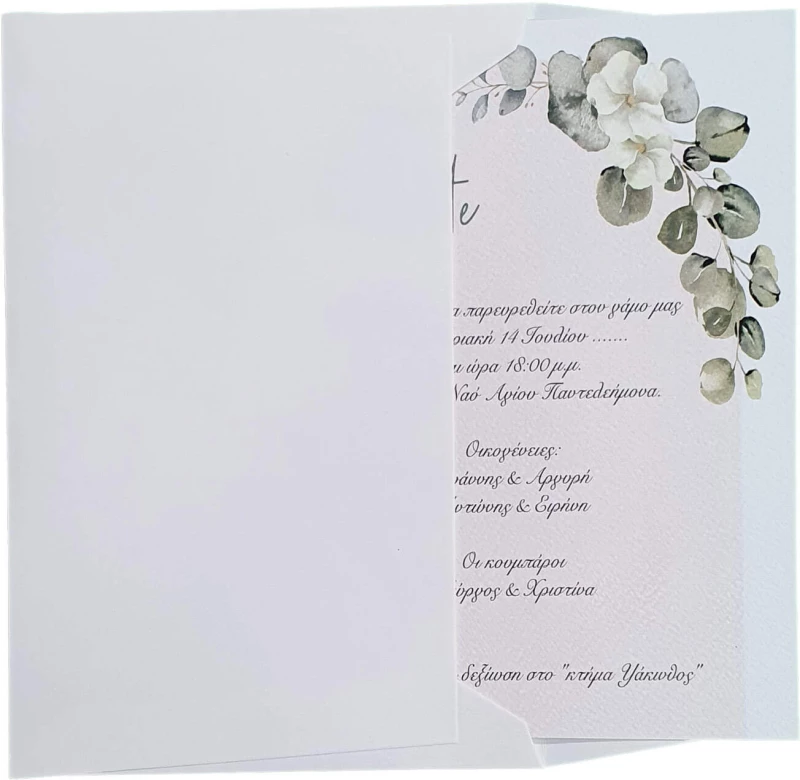 te
παρευρεθείτε στον γάμο μας
14 Ιουλίου .......
ώρα 18:00 μ.μ.
Ναό Αγίου Παντελεήμονα.
Οικογένειες:
& Αργυρή
& Ειρήνη
Οι κουμπάροι
& Χριστίνα
δεξίωση στο "κτήμα Υάκινθος"